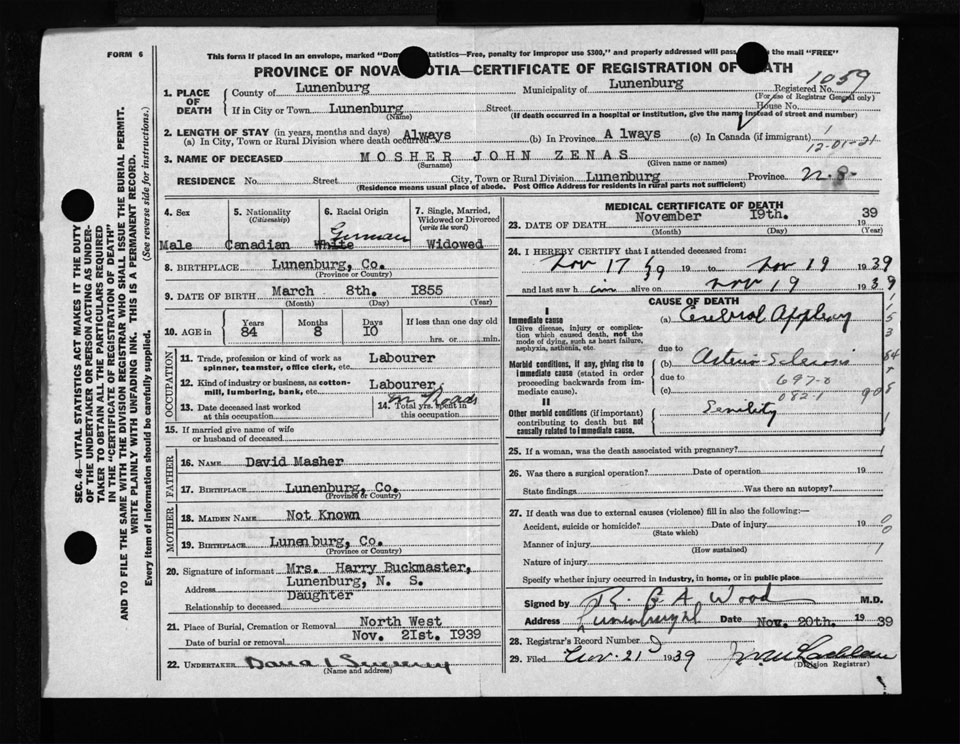 FORM 6
This form if placed in an envelope, marked "Dom Statistics—Free, penalty for improper use $300," and properly addressed will pass the mail "FREE"
PROVINCE OF NOVA OTIA—CERTIFICATE OF REGISTRATION OF DEATH
1059
1. PLACE OF DEATH
County of Lunenburg
Municipality of Lunenburg
Registered No.
(For use of Registrar General only)
If in City or Town Lunenburg
(Name)
Street
House No.
(If death occurred in a hospital or institution, give the name instead of street and number)
2. LENGTH OF STAY (in years, months and days)
(a) In City, Town or Rural Division where death occurred Always
(b) In Province Always
(c) In Canada (if immigrant)
12-01-21
3. NAME OF DECEASED MOSHER JOHN ZENAS
(Surname)
(Given name or names)
RESIDENCE No. Street City, Town or Rural Division Lunenburg Province N.S.
(Residence means usual place of abode. Post Office Address for residents in rural parts not sufficient)
4. Sex
Male
5. Nationality
(Citizenship)
Canadian
6. Racial Origin
German
White
7. Single, Married, Widowed or Divorced
(write the word)
Widowed
8. BIRTHPLACE Lunenburg, Co.
(Province or Country)
9. DATE OF BIRTH March 8th. 1855
(Month) (Day) (Year)
10. AGE in
Years Months Days If less than one day old
84 8 10
hrs. or min.
OCCUPATION
11. Trade, profession or kind of work as spinner, teamster, office clerk, etc. Labourer
12. Kind of industry or business, as cotton-mill, lumbering, bank, etc. Labourer,
on Roads
13. Date deceased last worked at this occupation
14. Total yrs. spent in this occupation
15. If married give name of wife or husband of deceased
FATHER
16. NAME David Masher
17. BIRTHPLACE Lunenburg, Co.
(Province or Country)
MOTHER
18. MAIDEN NAME Not Known
19. BIRTHPLACE Lunenburg, Co.
(Province or Country)
20. Signature of informant Mrs. Harry Buckmaster,
Address Lunenburg, N. S.
Daughter
Relationship to deceased
21. Place of Burial, Cremation or Removal North West
Date of burial or removal Nov. 21st. 1939
22. UNDERTAKER
(Name and address)
MEDICAL CERTIFICATE OF DEATH
23. DATE OF DEATH November 19th. 39
(Month) (Day) (Year)
24. I HEREBY CERTIFY that I attended deceased from:
Nov 17 /39 19 to Nov 19 1939
and last saw h im alive on Nov 19 1939
CAUSE OF DEATH
I
Immediate cause
Give disease, injury or complication which caused death, not the mode of dying, such as heart failure, asphyxia, asthenia, etc.
(a) Cerebral Applexy
due to
Morbid conditions, if any, giving rise to immediate cause (stated in order proceeding backwards from immediate cause).
(b) Arterio-Sclerosis
due to 697-0
(c) 082-1
908
II
Other morbid conditions (if important) contributing to death but not causally related to immediate cause.
Senility
25. If a woman, was the death associated with pregnancy?
26. Was there a surgical operation? Date of operation 19
State findings Was there an autopsy?
27. If death was due to external causes (violence) fill in also the following:—
Accident, suicide or homicide? Date of injury 19
(State which)
Manner of injury
(How sustained)
Nature of injury
Specify whether injury occurred in industry, in home, or in public place
Signed by R. G. A. Wood M.D.
Address Lunenburg Date Nov. 20th. 1939
28. Registrar's Record Number
29. Filed Nov. 21 1939
(Division Registrar)
SEC. 46—VITAL STATISTICS ACT MAKES IT THE DUTY
OF THE UNDERTAKER OR PERSON ACTING AS UNDER-
TAKER TO OBTAIN ALL THE PARTICULARS REQUIRED
IN THE "CERTIFICATE OF REGISTRATION OF DEATH"
AND TO FILE THE SAME WITH THE DIVISION REGISTRAR WHO SHALL ISSUE THE BURIAL PERMIT.
WRITE PLAINLY WITH UNFADING INK. THIS IS A PERMANENT RECORD.
Every item of information should be carefully supplied. (See reverse side for instructions.)